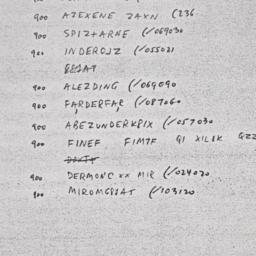 900 AZEXENE ZAXN (236
900 SPIZ+ARNE (/069030
900 INDEROJZ (/055021
900 ALEZDING (/069090
900 FARDERFAR (/087060
900 ABEZUNDERKPIX (/057030
900 FINEF FIMTF QI XILBK QZZ
900 DERMONC xx MIR (/024020
900 MIROMGBSAT (/103120